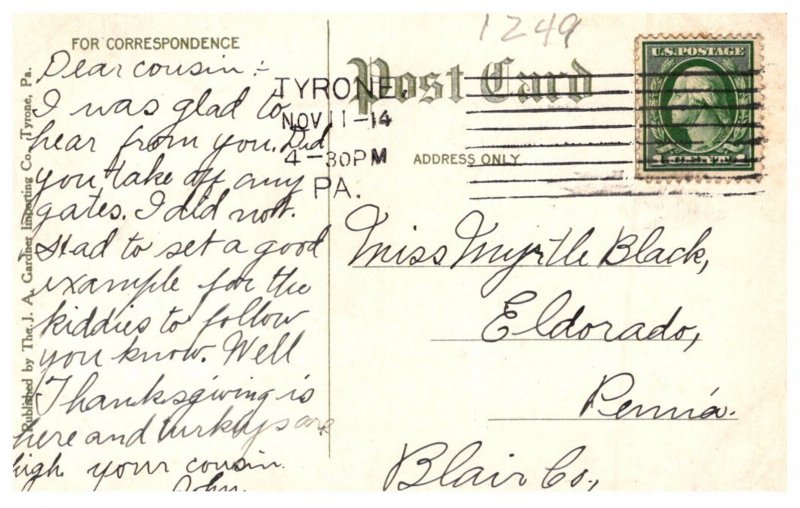 1249
FOR CORRESPONDENCE
Post Card
ADDRESS ONLY
U.S. POSTAGE
TYRONE,
NOV 11-14
4-30PM
PA.
Published by The J. A. Gardner Importing Co., Tyrone, Pa.
Dear cousin:-
I was glad to
hear from you. Did
you take off any
gates. I did not.
Had to set a good
example for the
kiddies to follow
you know. Well
Thanksgiving is
here and turkeys are
high your cousin
John.
Miss Myrtle Black,
Eldorado,
Penna.
Blair Co.,